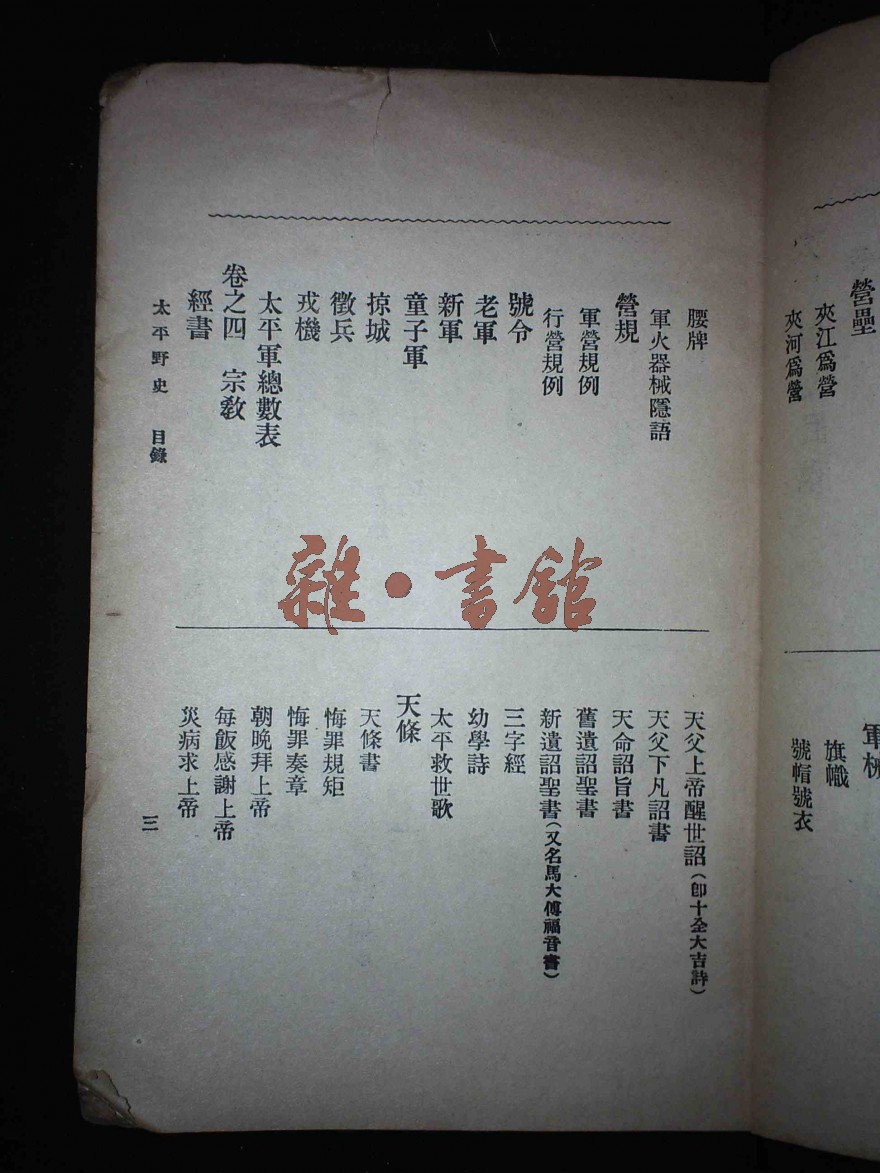 營壘
夾江爲營
夾河爲營
軍械
旗幟
號帽號衣
腰牌
軍火器械隱語
營規
軍營規例
行營規例
號令
老軍
新軍
童子軍
掠城
徵兵
戎機
太平軍總數表
卷之四 宗敎
經書
天父上帝醒世詔(卽十全大吉詩)
天父下凡詔書
天命詔旨書
舊遺詔聖書
新遺詔聖書(又名馬太傅福音書)
三字經
幼學詩
太平救世歌
天條
天條書
悔罪規矩
悔罪奏章
朝晚拜上帝
每飯感謝上帝
災病求上帝
太平野史 目錄
三
雜·書館